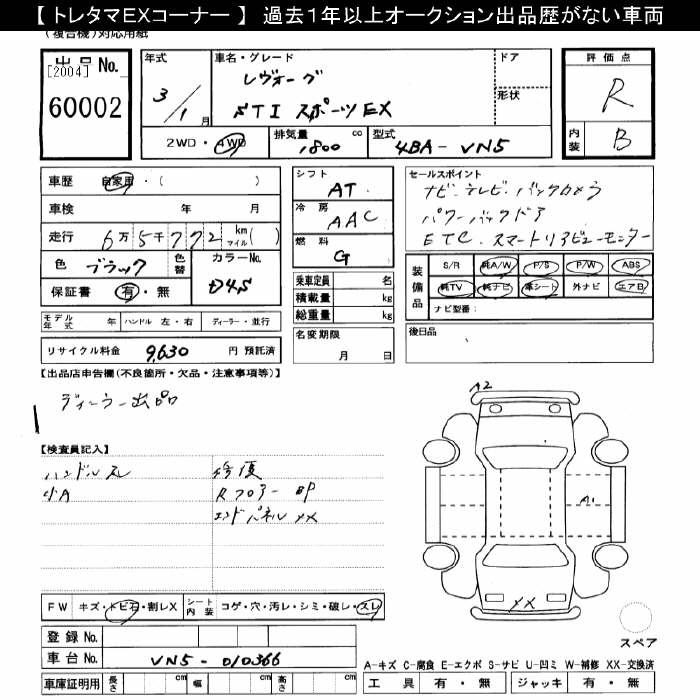 【 トレタマEXコーナー 】 過去１年以上オークション出品歴がない車両
(複合機)対応用紙
出品 No.
[2004]
60002
年式
3/1月
車名・グレード
レヴォーグ
STI スポーツEX
ドア
形状
評価点
R
内装 B
2WD・4WD
排気量 1800 cc
型式 4BA-VN5
車歴 自家用・( )
車検 年 月
走行 6万5千772 km マイル( )
色 ブラック 色替
カラーNo. D4S
保証書 有・無
シフト AT
冷房 AAC
燃料 G
乗車定員 名
積載量 kg
総重量 kg
セールスポイント
ナビ・テレビ・バックカメラ
パワーバックドア
ETC・スマートリアビューモニター
装備品
S/R 純A/W P/S P/W ABS
純TV 純ナビ 革シート 外ナビ エアB
ナビ型番：
モデル年式 年 ハンドル 左・右 ディーラー・並行
名変期限 月 日
後日品
リサイクル料金 9,630 円 預託済
【出品店申告欄(不良箇所・欠品・注意事項等)】
ディーラー出品
【検査員記入】
ハンドルスレ 修復
小A Rフロアー BP
エンドパネル XX
A2
A1
XX
スペア
FW キズ・トビ石・割レX シート内装 コゲ・穴・汚レ・シミ・破レ・スレ
登録 No.
車台 No. VN5-010366
車庫証明用 長さ cm 幅 cm 高さ cm
A-キズ C-腐食 E-エクボ S-サビ U-凹ミ W-補修 XX-交換済
工具 有・無 ジャッキ 有・無